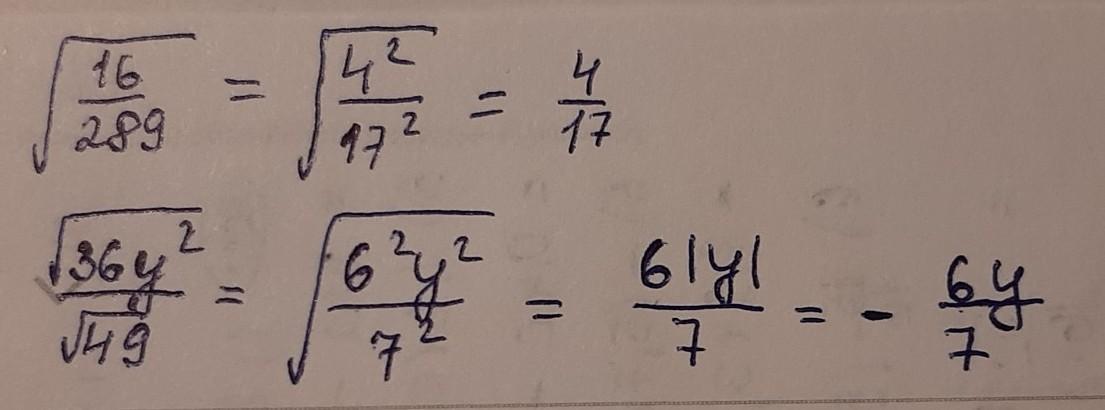 √(16/289) = √(4²/17²) = 4/17
√(36y²)/√49 = √(6²y²/7²) = 6|y|/7 = - 6y/7